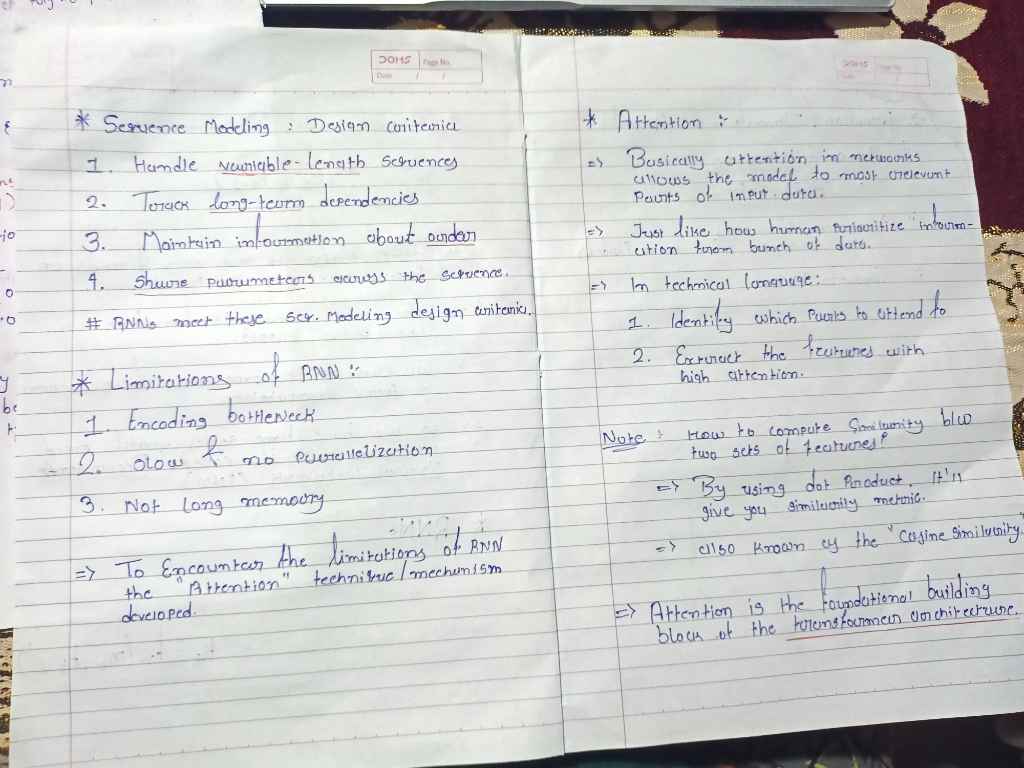 DOMS
Page No.
Date / /
* Sequence Modeling : Design criteria
1. Handle variable-length sequences
2. Track long-term dependencies
3. Maintain information about order
4. Share parameters across the sequence.
# RNNs meet these seq. Modeling design criteria.
* Limitations of RNN :
1. Encoding bottleneck
2. slow & no parallelization
3. Not long memory
=> To Encounter the limitations of RNN
the "Attention" technique/mechanism
developed.
DOMS
Page No.
Date
* Attention :
=> Basically attention in networks
allows the model to most relevant
parts of input data.
=> Just like how human prioritize inform-
ation from bunch of data.
=> In technical language:
1. Identify which parts to attend to
2. Extract the features with
high attention.
Note : How to compute similarity b/w
two sets of features?
=> By using dot product, It'll
give you similarity metric.
=> also known as the "Cosine Similarity"
=> Attention is the foundational building
block of the transformer architecture.